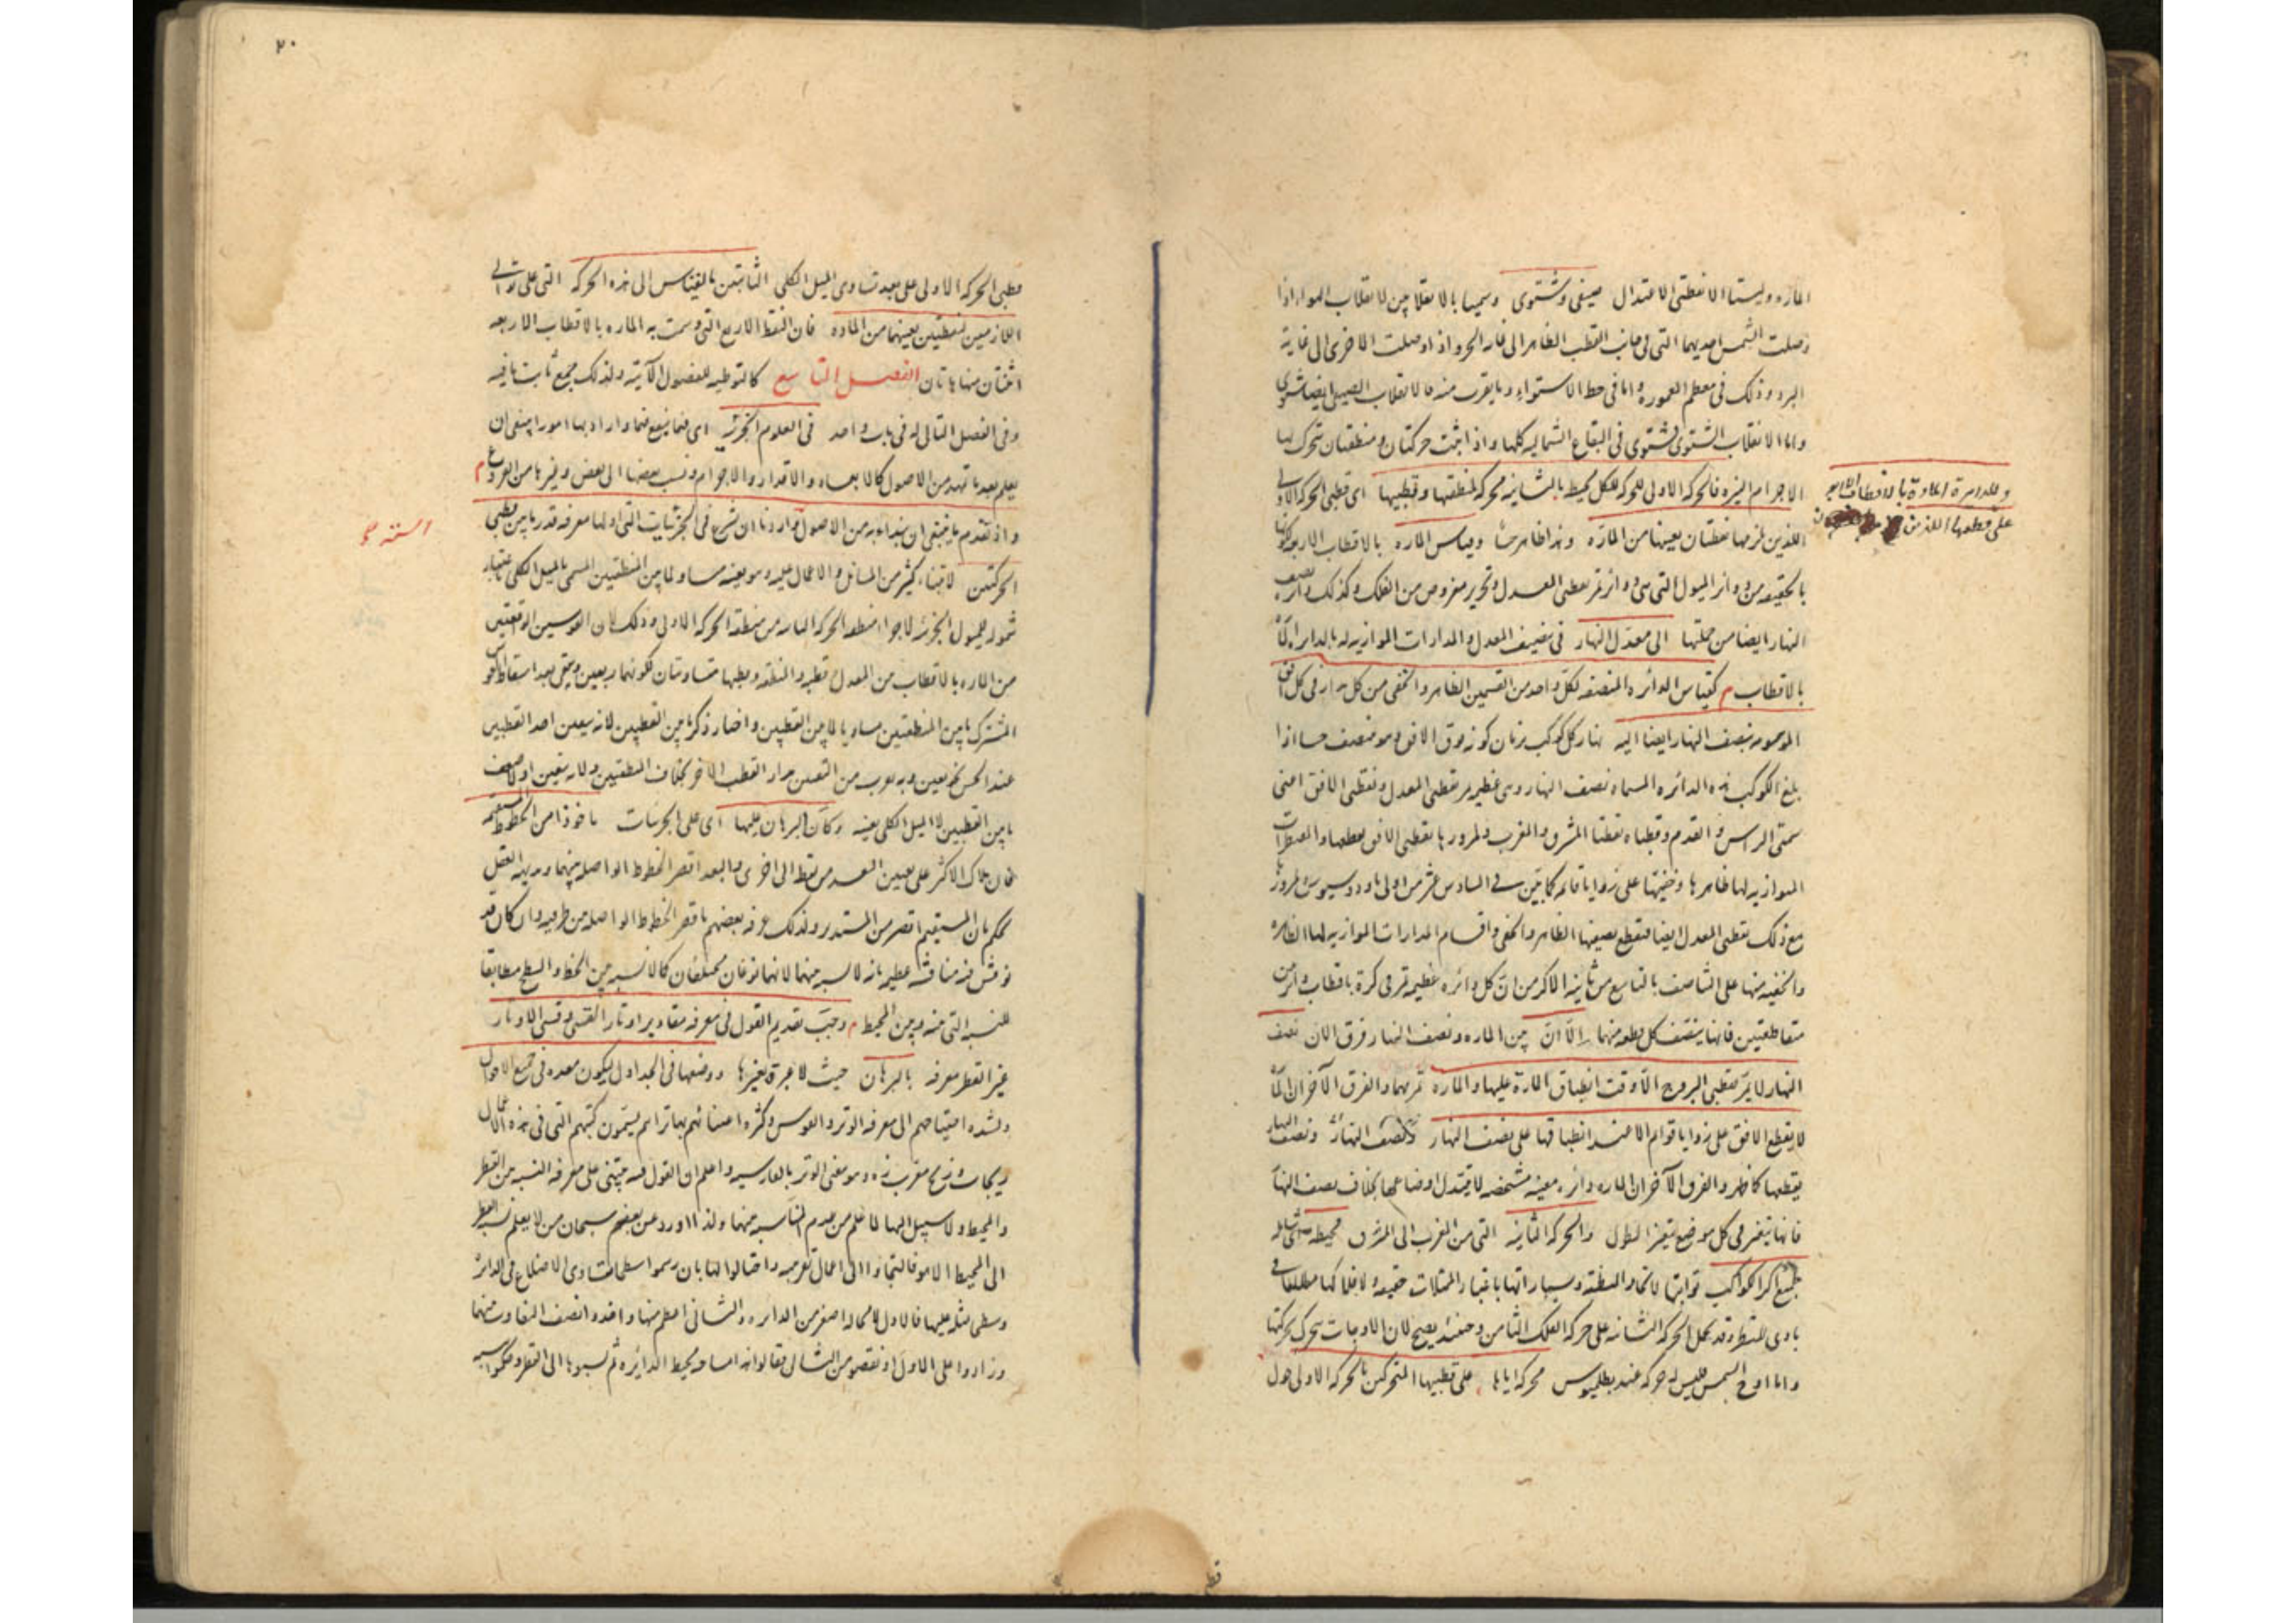 الماره وليستا الا نقطتى الاعتدال صيفى وشتوى وسميا بالانقلابين لانقلاب الهواء اذا
وصلت الشمس احديهما التى فى جانب القطب الظاهر الى غاية الحر واذا وصلت الاخرى الى غاية
البرد وذلك فى معظم المعموره واما فى خط الاستواء وما يقرب منه فالانقلاب الصيفى ايضا شتوى
واما الانقلاب الشتوى فشتوى فى البقاع الشماليه كلها واذا ثبت حركتان ومنطقتان تتحرك بها
الاجرام النيره فالحركه الاولى المحركه للكل محيط بالثانيه محركه لمنطقتها وقطبيها اى قطبى الحركه الاولى
اللذين لزمها نقطتان بعينها من الماره وهذا ظاهر وقياس الماره بالاقطاب الاربعه
بالحقيقه من دوائر الميول التى هى دوائر تمر بقطبى المعدل وبجزء مفروض من الفلك وكذلك دائره نصف
النهار ايضا من جملتها الى معدل النهار فى تنصيف المعدل والمدارات الموازيه له بالدائره الماره
بالاقطاب م كقياس الدائره المنصفه لكل واحد من القسمين الظاهر والخفى من كل مدار فى كل افق
الموسومه بنصف النهار ايضا اليه نهار كل كوكب زمان كونه فوق الافق وهو منتصف اذا
بلغ الكوكب هذه الدائره المسماه نصف النهار وهى عظيمه تمر بقطبى المعدل وبقطبى الافق اعنى
سمتى الراس والقدم وقطباه نقطتا المشرق والمغرب ولمرورها بقطبى الافق يقطعها والمقنطرات
الموازيه لها ظاهرها وخفيتها على زوايا قائمه كما تبين فى السادس عشر من اولى ثاودوسيوس ولمرورها
مع ذلك بقطبى المعدل ايضا فتقطع بنصفيها الظاهر والخفى واقسام المدارات الموازيه لها الظاهره
والخفيه منها على التناصف بالتاسع من ثانيه الاكر من ان كل دائره عظيمه تمر فى كرة باقطاب دائرتين
متقاطعتين فانها ينصف كل قطعه منهما الا ان بين الماره ونصف النهار فرق الان نصف
النهار لا يمر بقطبى البروج الا وقت انطباق المارة عليها والماره تمر بهما والفرق الآخر ان الماره
لا يقطع الافق على زوايا قوائم الا عند انطباقها على نصف النهار ونصف النهار
يقطعها كما ظهر والفرق الآخر ان الماره دائره معينه مشخصه لا يتبدل اوضاعها بخلاف نصف النهار
فانها يتغير فى كل موضع بتغير الطول والحركه الثانيه التى من المغرب الى المشرق محيطه شامله
لجميع اكر الكواكب ثوابتها لاتحاد المنطقه وسياراتها باعتبار الممثلات حقيقه لا افلاكها مطلقا فى
بادى النظر وقد تحمل الحركه الثانيه على حركه الفلك الثامن وحينئذ يصح لان الاوجات تتحرك بحركتها
واما اوج الشمس فليس له حركه عند بطلميوس محركه اياها على قطبيها المتحركين بالحركه الاولى حول
وللدايرة المارة بالاقطاب الاربعه
على قطبها اللذين
قط
٢٠
قطبى الحركه الاولى على بعد تساوى الميل الكلى الثابتين بالقياس الى هذه الحركه التى على توالى
اللازمين لنقطتين بعينهما من الماره فان النقط الاربع التى وسمت به الماره بالاقطاب الاربعه
اثنتان منها هاتان الفصل التاسع كالتوطيه للفصول الآتيه ولذلك جمع ثابت ما فيه
وفى الفصل التالى له فى باب واحد فى العلوم الجزئيه اى فيما ينفع فيها واراد بها امورا ينبغى ان
يعلم بعد ما تمهد من الاصول كالابعاد والاقدار والاجرام ونسب بعضها الى بعض وغيرها من الفروع م
واذ تقدم ما ينبغى ان يبدا به من الاصول واردنا ان نشرع فى الجزئيات التى اولها معرفه قدر ما بين قطبى
الحركتين لابتناء كثير من المسائل والاعمال عليه وهو بعينه مساو لما بين المنطقتين المسمى بالميل الكلى باعتبار
شموله للميول الجزئيه لاجزاء منطقه الحركه الثانيه من منطقة الحركه الاولى وذلك لان القوسين الواقعتين
من الماره بالاقطاب من المعدل وقطبه والمنطقه وقطبها متساويتان لكونهما ربعين ويبقى بعد اسقاط القوس
المشترك ما بين المنطقتين مساويا لما بين القطبين واختار ذكر ما بين القطبين لانه يتعين احد القطبين
عند الحس تعين وبه يعرف من التعين مدار القطب الآخر بخلاف المنطقتين ولانه يتعين اولا نصف
ما بين القطبين لا الميل الكلى بعينه وكان البرهان عليها اى على الجزئيات ماخوذا من الخطوط المستقيمه
فان هناك الاكثر على تعيين البعد من نقطه الى اخرى والبعد اقصر الخطوط الواصله بينهما وبديهه العقل
تحكم بان المستقيم اقصر من المستدير ولذلك عرفه بعضهم باقصر الخطوط الواصله بين طرفيه وان كان قد
نوقش فيه مناقشه عظيمه بانه لا نسبه بينهما لانهما نوعان مختلفان كما لا نسبه بين الخط والسطح مطابقا
للنسبه التى بينه وبين المحيط م وجب تقديم القول فى معرفه مقادير اوتار القسى وقسى الاوتار
غير القطر معرفه بالبرهان حيث لا عبرة بغيرها ووضعها فى الجداول ليكون معده فى جميع الاحوال
ولشده احتياجهم الى معرفه الوتر والقوس وكثره اعتنائهم بها تراهم يسمون كتبهم التى فى هذه الاعمال
زيجات وزيج معرب زه وهو معنى الوتر بالفارسيه واعلم ان القول فيه مبتنى على معرفه النسبه بين القطر
والمحيط ولا سبيل اليها لما علم من عدم المناسبه بينهما ولذا ورد عن بعضهم سبحان من لا يعلم نسبه القطر
الى المحيط الا هو فالتجاوا الى اعمال تقريبيه واحتالوا لها بان رسموا سطحا متساوى الاضلاع فى الدائره
وسطحا مثله عليها فالاول لا محاله اصغر من الدائره والثانى اعظم منها واخذوا نصف التفاوت بينهما
وزادوا على الاول او نقصوه من الثانى فقالوا انه مساو لمحيط الدائره ثم نسبوها الى القطر وحكموا بنسبه